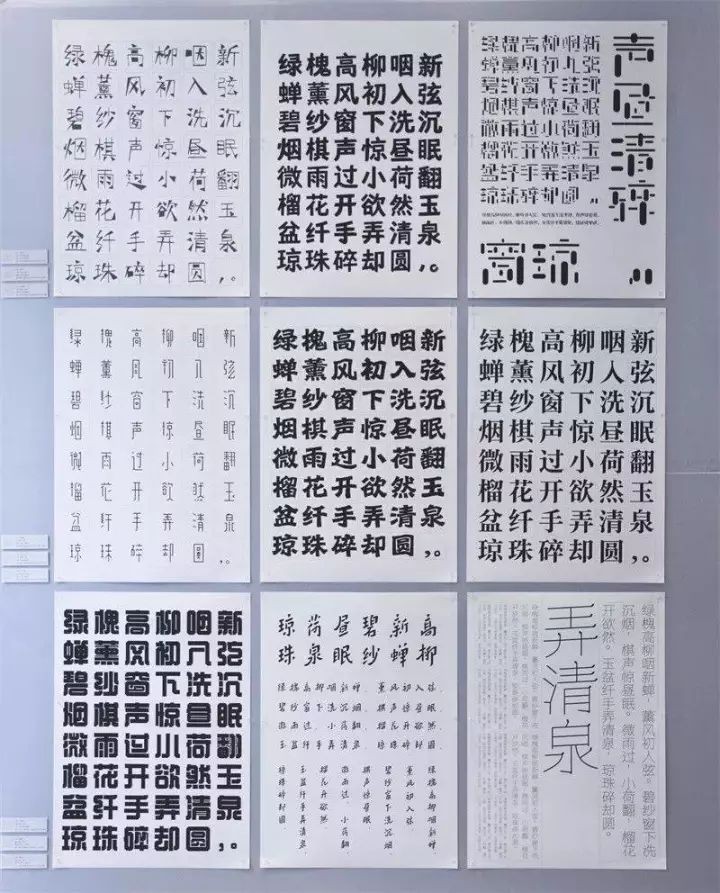 绿槐高柳咽新
蝉薰风初入弦
碧纱窗下洗沉
烟棋声惊昼眠
微雨过小荷翻
榴花开欲然玉
盆纤手弄清泉
琼珠碎却圆,。
绿槐高柳咽新
蝉薰风初入弦
碧纱窗下洗沉
烟棋声惊昼眠
微雨过小荷翻
榴花开欲然玉
盆纤手弄清泉
琼珠碎却圆,。
绿槐高柳咽新
蝉薰风初入弦
碧纱窗下洗沉
烟棋声惊昼眠
微雨过小荷翻
榴花开欲然玉
盆纤手弄清泉
琼珠碎却圆,。
声昼清碎
窗琼
绿槐高柳咽新
蝉薰风初入弦
碧纱窗下洗沉
烟棋声惊昼眠
微雨过小荷翻
榴花开欲然玉
盆纤手弄清泉
琼珠碎却圆,。
绿槐高柳咽新
蝉薰风初入弦
碧纱窗下洗沉
烟棋声惊昼眠
微雨过小荷翻
榴花开欲然玉
盆纤手弄清泉
琼珠碎却圆,。
绿槐高柳咽新
蝉薰风初入弦
碧纱窗下洗沉
烟棋声惊昼眠
微雨过小荷翻
榴花开欲然玉
盆纤手弄清泉
琼珠碎却圆,。
绿槐高柳咽新
蝉薰风初入弦
碧纱窗下洗沉
烟棋声惊昼眠
微雨过小荷翻
榴花开欲然玉
盆纤手弄清泉
琼珠碎却圆,。
高柳
新蝉
碧纱
昼眠
荷泉
琼珠
绿槐高柳咽新蝉
薰风初入弦
碧纱窗下洗沉烟
棋声惊昼眠
微雨过 小荷翻
榴花开欲然
玉盆纤手弄清泉
琼珠碎却圆
绿槐高柳咽新蝉，薰风初入弦。碧纱窗下洗
沉烟，棋声惊昼眠。微雨过，小荷翻，榴花
开欲然。玉盆纤手弄清泉，琼珠碎却圆。
弄清泉